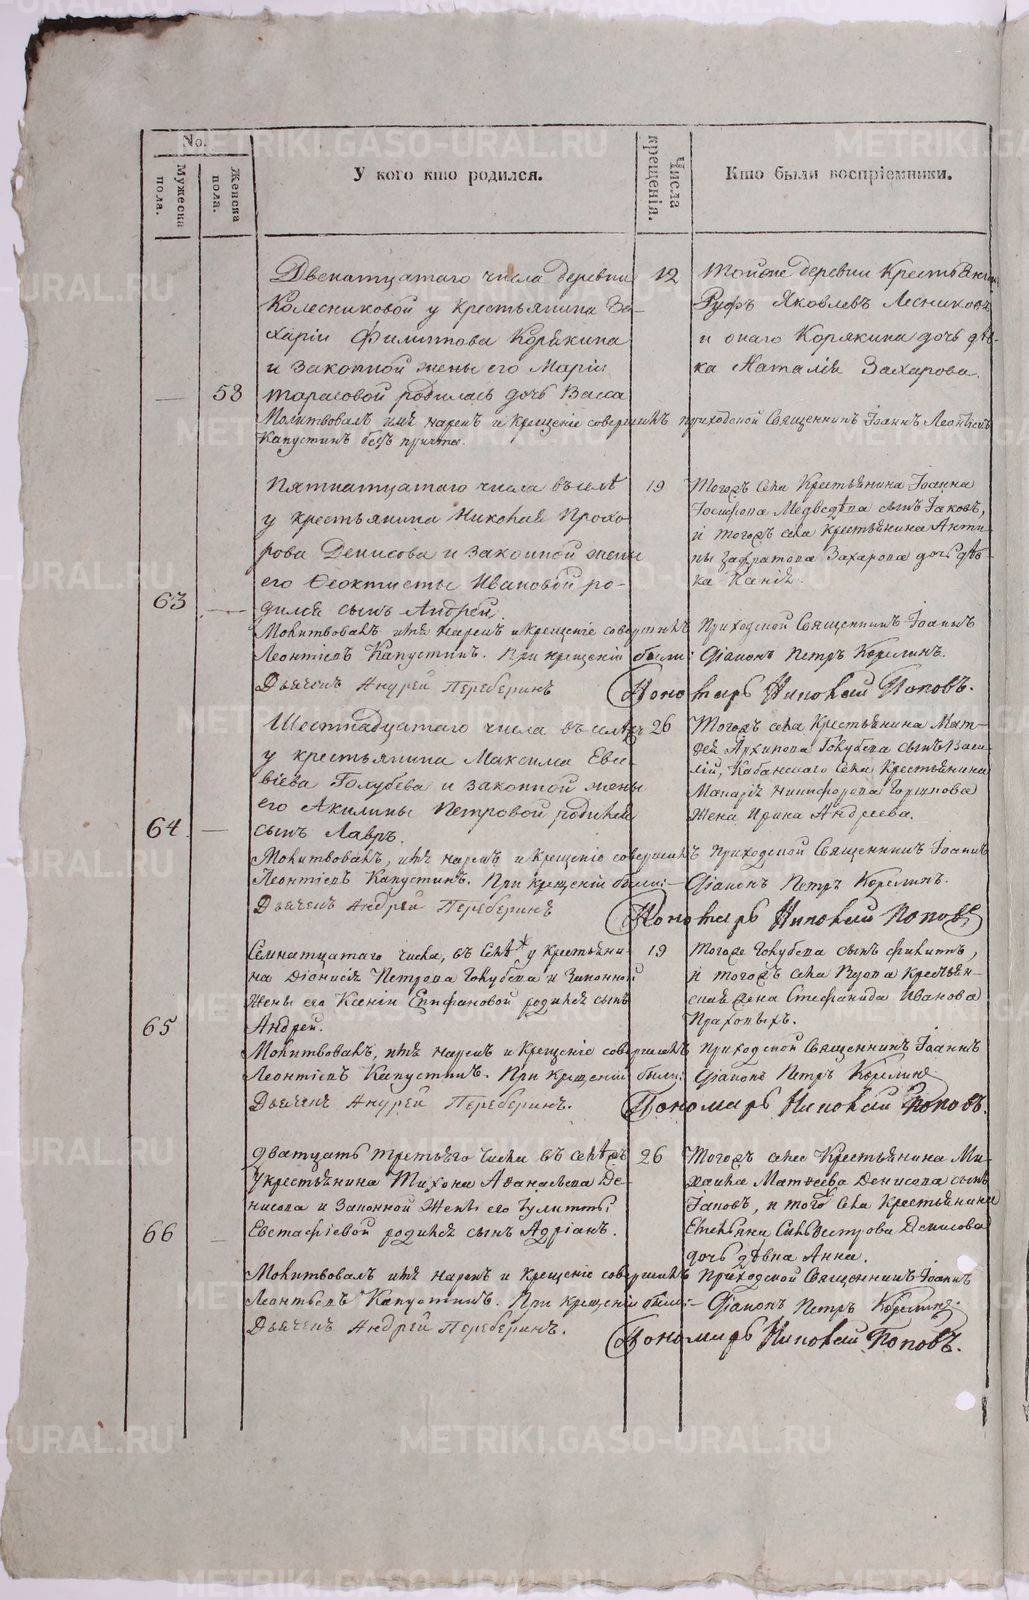 No.
Мужеска пола.
Женска пола.
У кого кто родился.
Числа крещенія.
Кто были воспріемники.
Двенатцатаго числа деревни
Колесниковой у крестьянина За-
харія Филиппова Корякина
и законной жены его Маріи
53 Тарасовой родилась дочь Васса
12
Тойже деревни Крестьянинъ
Руфъ Яковлевъ Лесниковъ
и онаго Корякина дочь дѣв-
ка Наталія Захарова.
Молитвовалъ имя нарекъ и крещеніе совершилъ приходской Священникъ Іоаннъ Леонтьевъ
Капустинъ безъ причта.
Пятнатцатаго числа въ селѣ
у крестьянина Николая Прохо-
рова Денисова и законной жены
его Феоктисты Ивановой ро-
63 дился сынъ Андрей.
19
Тогожъ села Крестьянина Іоанна
Іосифова Медведѣва сынъ Іаковъ,
и тогожъ села Крестьянина Анти-
пы Захарова дочь дѣв-
ка
Молитвовалъ имя нарекъ и крещеніе совершилъ Приходской Священникъ Іоаннъ
Леонтіевъ Капустинъ. При крещеніи были: Діаконъ Петръ Корелинъ.
Дьячекъ Андрей Переберинъ Пономарь Николай Поповъ.
Шестнадцатаго числа въ селѣ
у крестьянина Максима Евсе-
віева Голубева и законной жены
его Акилины Петровой родился
64 сынъ Лавръ.
26
Тогожъ села Крестьянина Мат-
фея Архипова Голубева сынъ Васи-
лій, Кабанскаго села Крестьянина
Макарія Никифорова
жена Ирина Андреева.
Молитвовалъ, имя нарекъ и крещеніе совершилъ Приходской Священникъ Іоаннъ
Леонтіевъ Капустинъ. При крещеніи были:- Діаконъ Петръ Корелинъ.
Дьячекъ Андрей Переберинъ Пономарь Николай Поповъ
Семнатцатаго числа, въ селѣ у крестьяни-
на Діонисія Петрова Голубева и Законной
жены его Ксеніи Епифановой родился сынъ
65 Андрей.
19
Тогоже Голубева сынъ Филиппъ,
и тогожъ села Крестьян-
ская жена Стефанида Иванова
Молитвовалъ, имя нарекъ и крещеніе совершилъ Приходской Священникъ Іоаннъ
Леонтіевъ Капустинъ. При крещеніи были: Діаконъ Петръ Корелинъ
Дьячекъ Андрей Переберинъ. Пономарь Николай Поповъ.
Дватцать третьяго числа въ селѣ
у крестьянина Тихона Афанасьева Де-
нисова и Законной жены его Іулитты
66 Евстафіевой родился сынъ Адріанъ.
26
Тогожъ села Крестьянина Ми-
хаила Матвеева Денисова сынъ
Іаковъ, и того села Крестьянина
Емельяна Сильвестрова Денисова
дочь дѣвка Анна.
Молитвовалъ имя нарекъ и крещеніе совершилъ Приходской Священникъ Іоаннъ
Леонтьевъ Капустинъ. При крещеніи были:- Діаконъ Петръ Корелинъ.
Дьячекъ Андрей Переберинъ. Пономарь Николай Поповъ.
METRIKI.GASO-URAL.RU